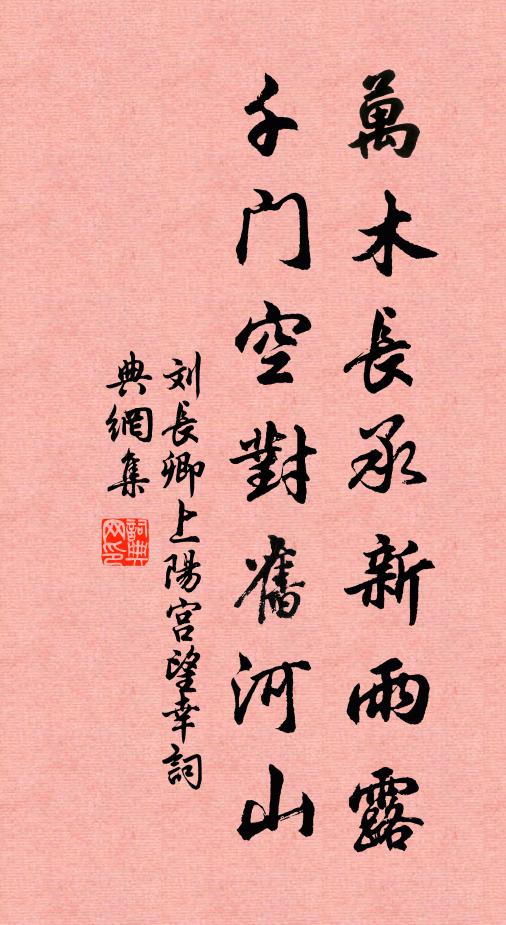 萬木長承新雨露
千门空對舊河山
刘長卿上陽宫望幸詞
典網集
詞典
网印